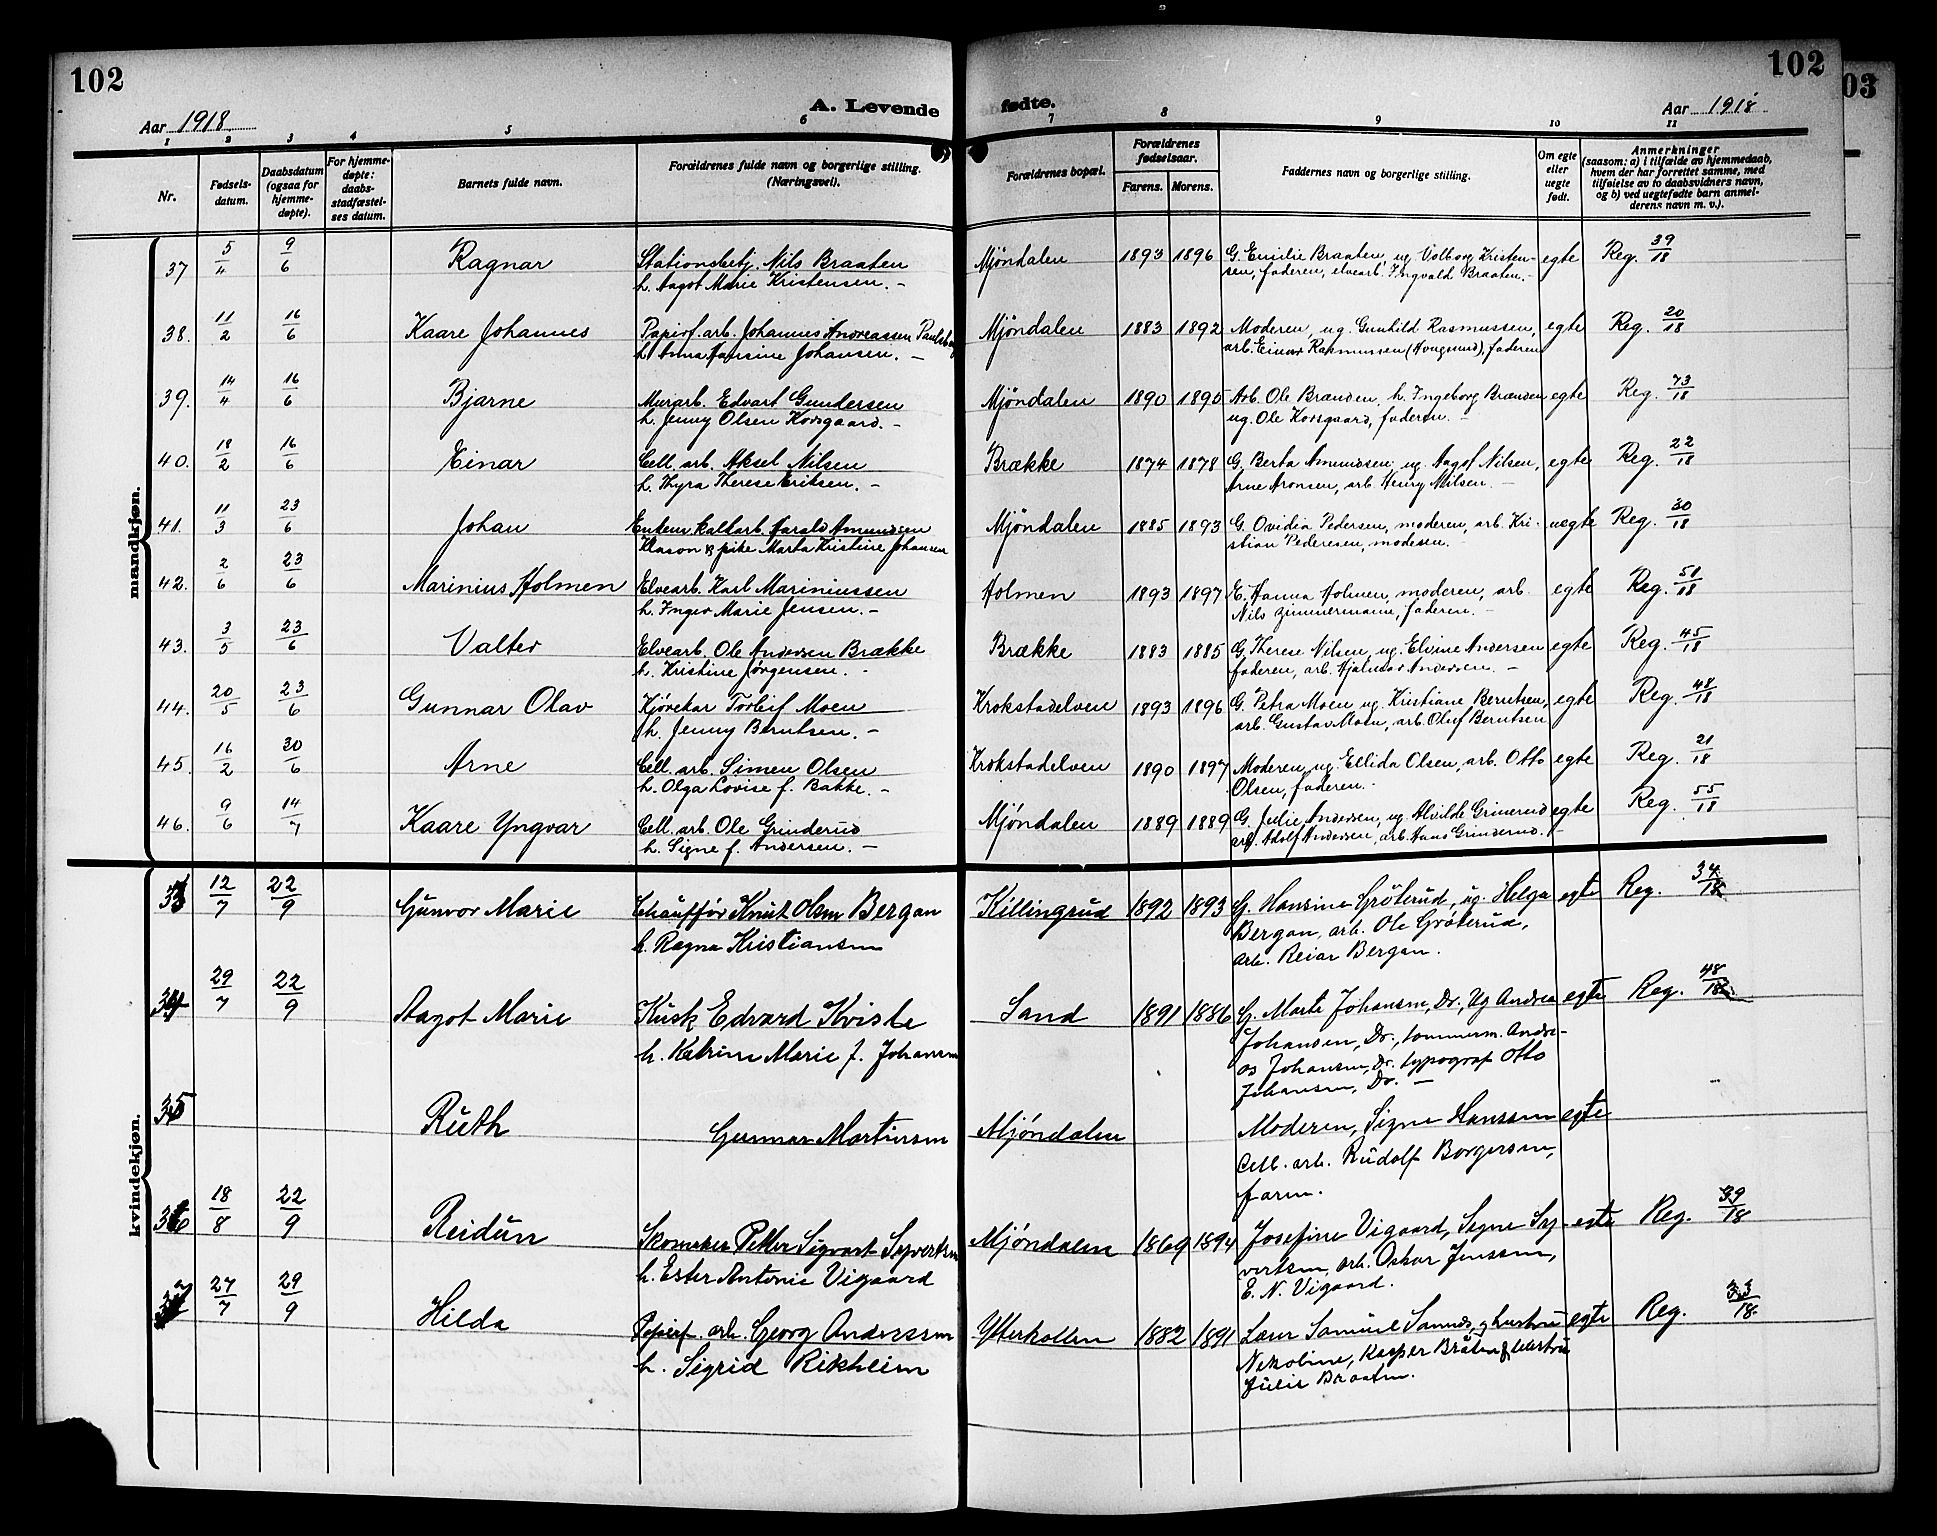 102
102
03
A. Levende
fødte.
Aar 1918
Aar 1918
1 2 3 4 5 6 7 8 9 10 11
Nr.
Fødsels-
datum.
Daabsdatum
(ogsaa for
hjemme-
døpte).
For hjemme-
døpte:
daabs-
stadfæstel-
ses datum.
Barnets fulde navn.
Forældrenes fulde navn og borgerlige stilling.
(Næringsvei).
Forældrenes bopæl.
Forældrenes
fødselsaar.
Farens. Morens.
Faddernes navn og borgerlige stilling.
Om egte
eller
uegte
født.
Anmerkninger
(saasom: a) i tilfælde av hjemmedaab,
hvem der har forrettet samme, med
tilføielse av to daabsvidners navn,
og b) ved uegtefødte barn anmel-
derens navn m. v.).
mandkjøn.
37 5/4 9/6 Ragnar Stationsbetj. Nils Braaten Mjöndalen 1893 1896 G. Emilie Braaten, ug. Valborg Kristen- egte Reg. 39/18
h. Aagot Marie Kristensen. – sen, faderen, elvearb. Ingvald Braaten. –
38. 11/2 16/6 Kaare Johannes Papirf. arb. Johannes Andreassen Mjöndalen 1883 1892 Moderen, ug. Gunhild Rasmussen, egte Reg. 20/18
h. Anna Hansine Johansen. – arb. Einar Rasmussen (Hougsund), faderen
39. 14/4 16/6 Bjarne Murarb. Edvart Gundersen Mjöndalen 1890 1895 Arb. Ole Brænden, h. Ingeborg Brænden egte Reg. 73/18
h. Jenny Olsen Korsgaard. – ug. Ole Korsgaard, faderen. –
40. 18/2 16/6 Einar Cell. arb. Aksel Nilsen Brække 1874 1878 G. Berta Amundsen, ug. Aagot Nilsen, egte Reg. 22/18
h. Thyra Therese Eriksen. – Arne Aronsen, arb. Henry Nilsen. –
41. 11/3 23/6 Johan Enkem. kalkarb. Harald Amundsen Mjöndalen 1885 1893 G. Ovidia Pedersen, moderen, arb. Kri- uegte Reg. 30/18
Klason & pike Marta Kristine Johansen stian Pedersen, moderen.
42. 2/6 23/6 Marinius Holmen Elvearb. Karl Mariniussen Holmen 1893 1897 E. Hanna Holmen, moderen, arb. egte Reg. 51/18
h. Inger Marie Jensen. – Nils Zimmermann, faderen. –
43. 3/5 23/6 Valter Elvearb. Ole Andersen Brække Brække 1883 1885 G. Therese Nilsen, ug. Elvine Andersen egte Reg. 45/18
h. Kristine Jørgensen. – faderen, arb. Hjalmar Andersen. –
44. 20/5 23/6 Gunnar Olav Kjörekar Torleif Moen Krokstadelven 1893 1896 G. Petra Moen ug. Kristiane Berntsen, egte Reg. 48/18
h. Jenny Berntsen. – arb. Gustav Moen, arb. Oluf Berntsen
45. 16/2 30/6 Arne Cell. arb. Simen Olsen Krokstadelven 1890 1897 Moderen, ug. Ellida Olsen, arb. Otto egte Reg. 21/18
h. Olga Lovise f. Bakke. – Olsen, faderen. –
46. 9/6 14/7 Kaare Yngvar Cell. arb. Ole Grinderud Mjöndalen 1889 1889 G. Julie Andersen, ug. Alvilde Grinerud egte Reg. 55/18
h. Signe f. Andersen. – arb. Adolf Andersen, arb. Hans Grinderud. –
kvindekjøn.
33 12/7 22/9 Gunvor Marie Chauffør Knut Olsen Bergan Killingrud 1892 1893 G. Hansine Gröterud, ug. Helga egte Reg. 34/18
h. Ragna Kristiansen Bergan, arb. Ole Gröterud,
arb. Reiar Bergan.
34 29/7 22/9 Aagot Marie Kusk Edvard Kviste Sand 1891 1886 G. Marte Johansen, Dr., Ug Andrea egte Reg. 48/18
h. Katrine Marie f. Johansen Johansen, Dr., tommerm. Andre-
as Johansen, Dr. typograf Otto
Johansen, Dr. –
35 Ruth Gunnar Martinsen Mjöndalen Moderen, Signe Hanssen egte
Cell. arb. Rudolf Borgersen,
faren.
36 18/8 22/9 Reidun Skomaker Petter Sigvart Syvertsen Mjöndalen 1869 1894 Josefine Vigaard, Signe Sy- egte Reg. 39/18
h. Ester Antonie Vigaard vertsen, arb. Oskar Jenssen,
E. N. Vigaard.
37 27/7 29/9 Hilda Papirf. arb. Georg Andressen Ytterkollen 1882 1891 Læser Samuel & hustru egte Reg. 33/18
h. Sigrid Rikheim Nikoline, Kasper Bråten & hustru
Julie Braaten.